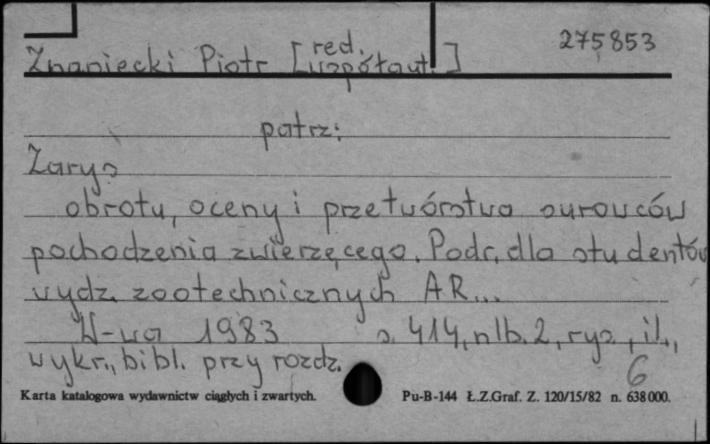 275853
Znaniecki Piotr [red. współaut.]
patrz:
Zarys
obrotu, oceny i przetwórstwa surowców
pochodzenia zwierzęcego. Podr. dla studentów
wydz. zootechnicznych AR...
W-wa 1983 s. 414, nlb. 2, rys., il.,
wykr., bibl. przy rozdz.
6
Karta katalogowa wydawnictw ciągłych i zwartych. Pu-B-144 Ł.Z.Graf. Z. 120/15/82 n. 638000.